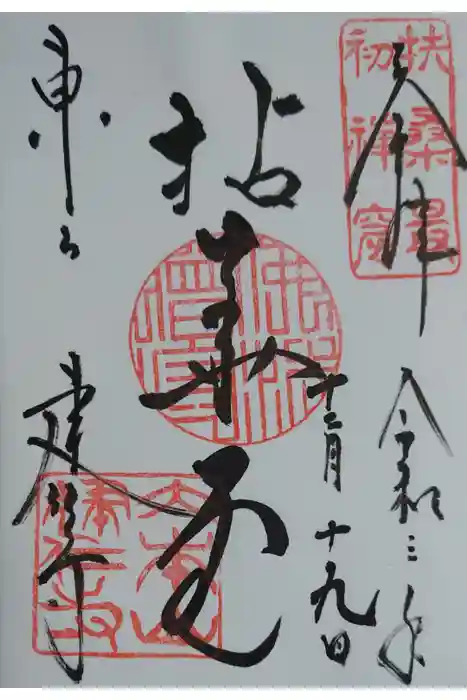 扶桑最
初禪窟
奉拝
令和三年
十二月十九日
拈華堂
東山
建仁寺